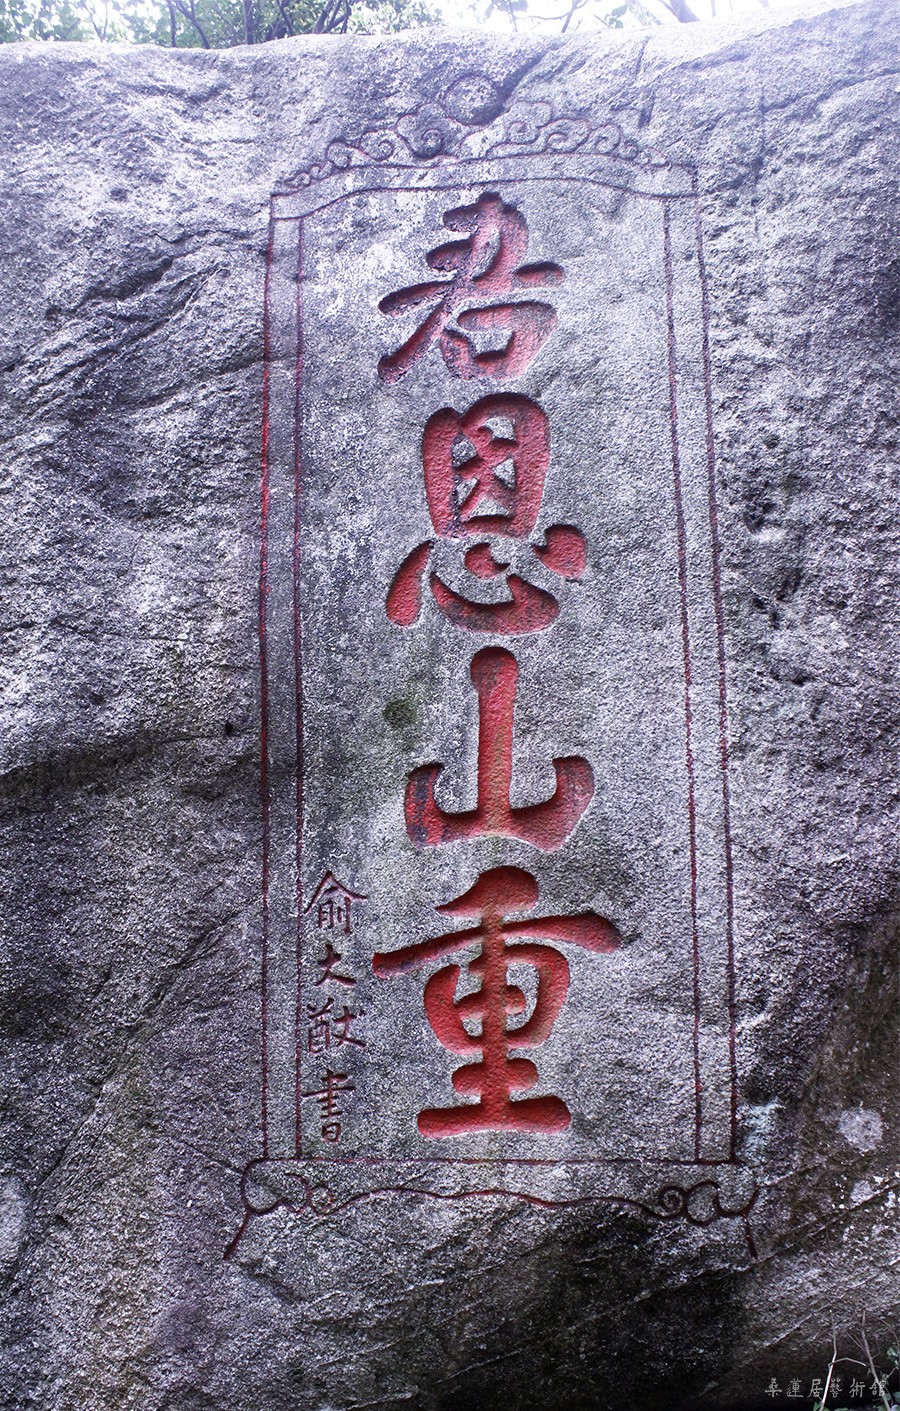 君恩山重
俞大猷書
桑蓮居藝術館